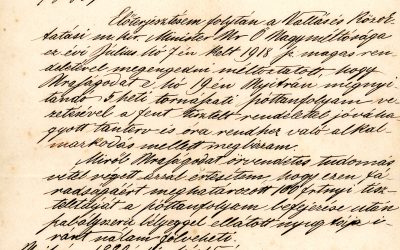 Előterjesztésem folytán a Vallás és Közok-
tatási m. kir. Minister Úr Ő Nagyméltósága
ez évi Július hó 7én kelt 1918 sz. magas ren-
deletével megengedni méltóztatott, hogy
Uraságodat e hó 19én Nyitrán megnyi-
landó 3 heti tornapati póttanfolyam ve-
zetésével a fent tisztelt rendelettel jóváha-
gyott tanterv és óra rendhez való alkal-
markodás mellett megbízzam.
Miről Uraságodat örvendetes tudomás
vétel végett azzal értesítem, hogy ezen fá-
radságáért meghatározott 100 frtnyi tisz-
teletdíját a póttanfolyam befejezése után
szabályszerű bélyeggel ellátott nyugtája i-
ránt nálam felveheti.